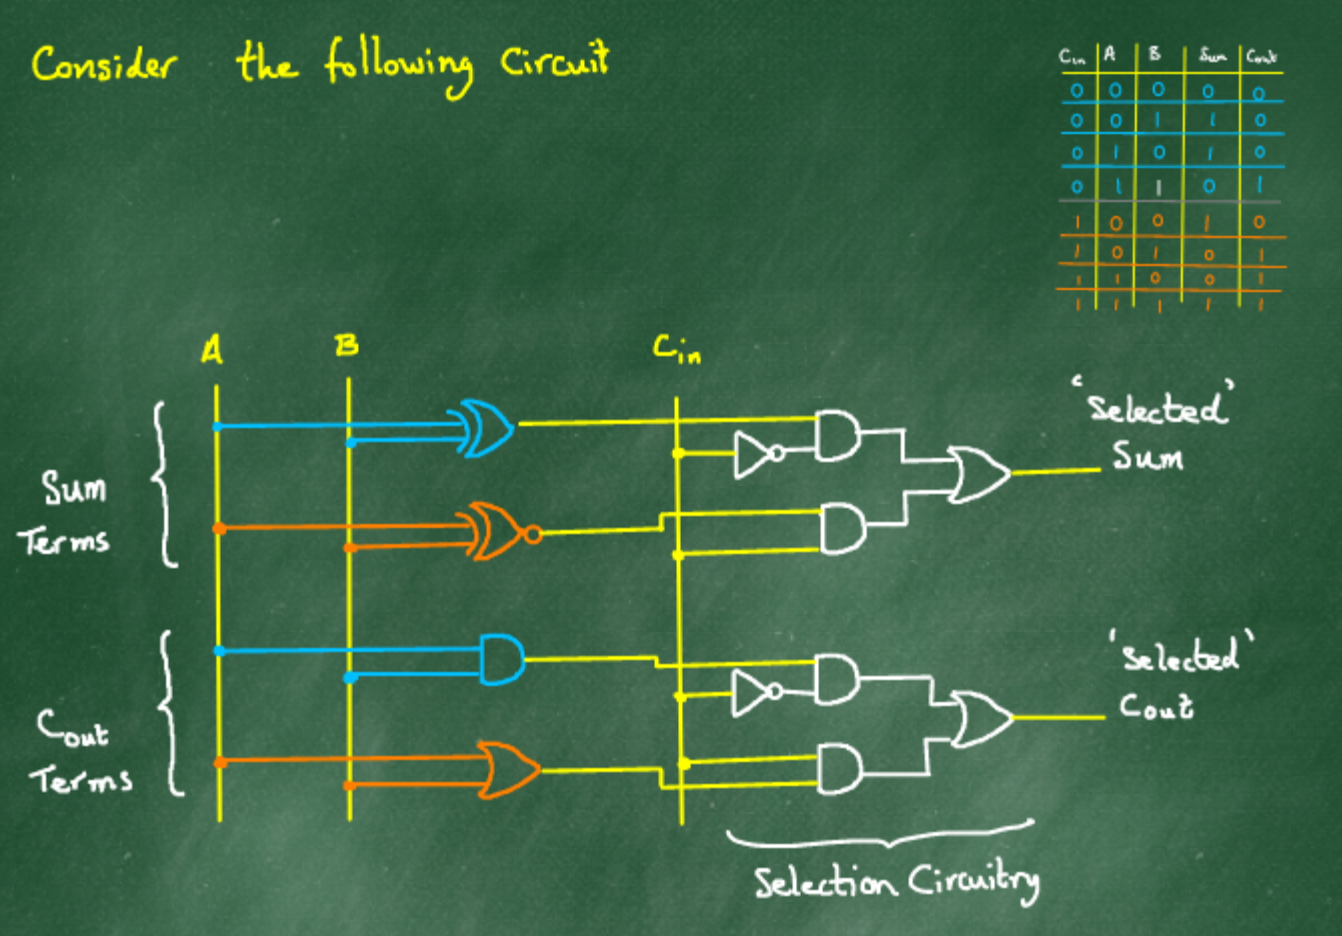 Consider the following Circuit
Cin A B Sum Cout
0 0 0 0 0
0 0 1 1 0
0 1 0 1 0
0 1 1 0 1
1 0 0 1 0
1 0 1 0 1
1 1 0 0 1
1 1 1 1 1
A B Cin
'Selected'
Sum
Sum
Terms
'Selected'
Cout
Cout
Terms
Selection Circuitry